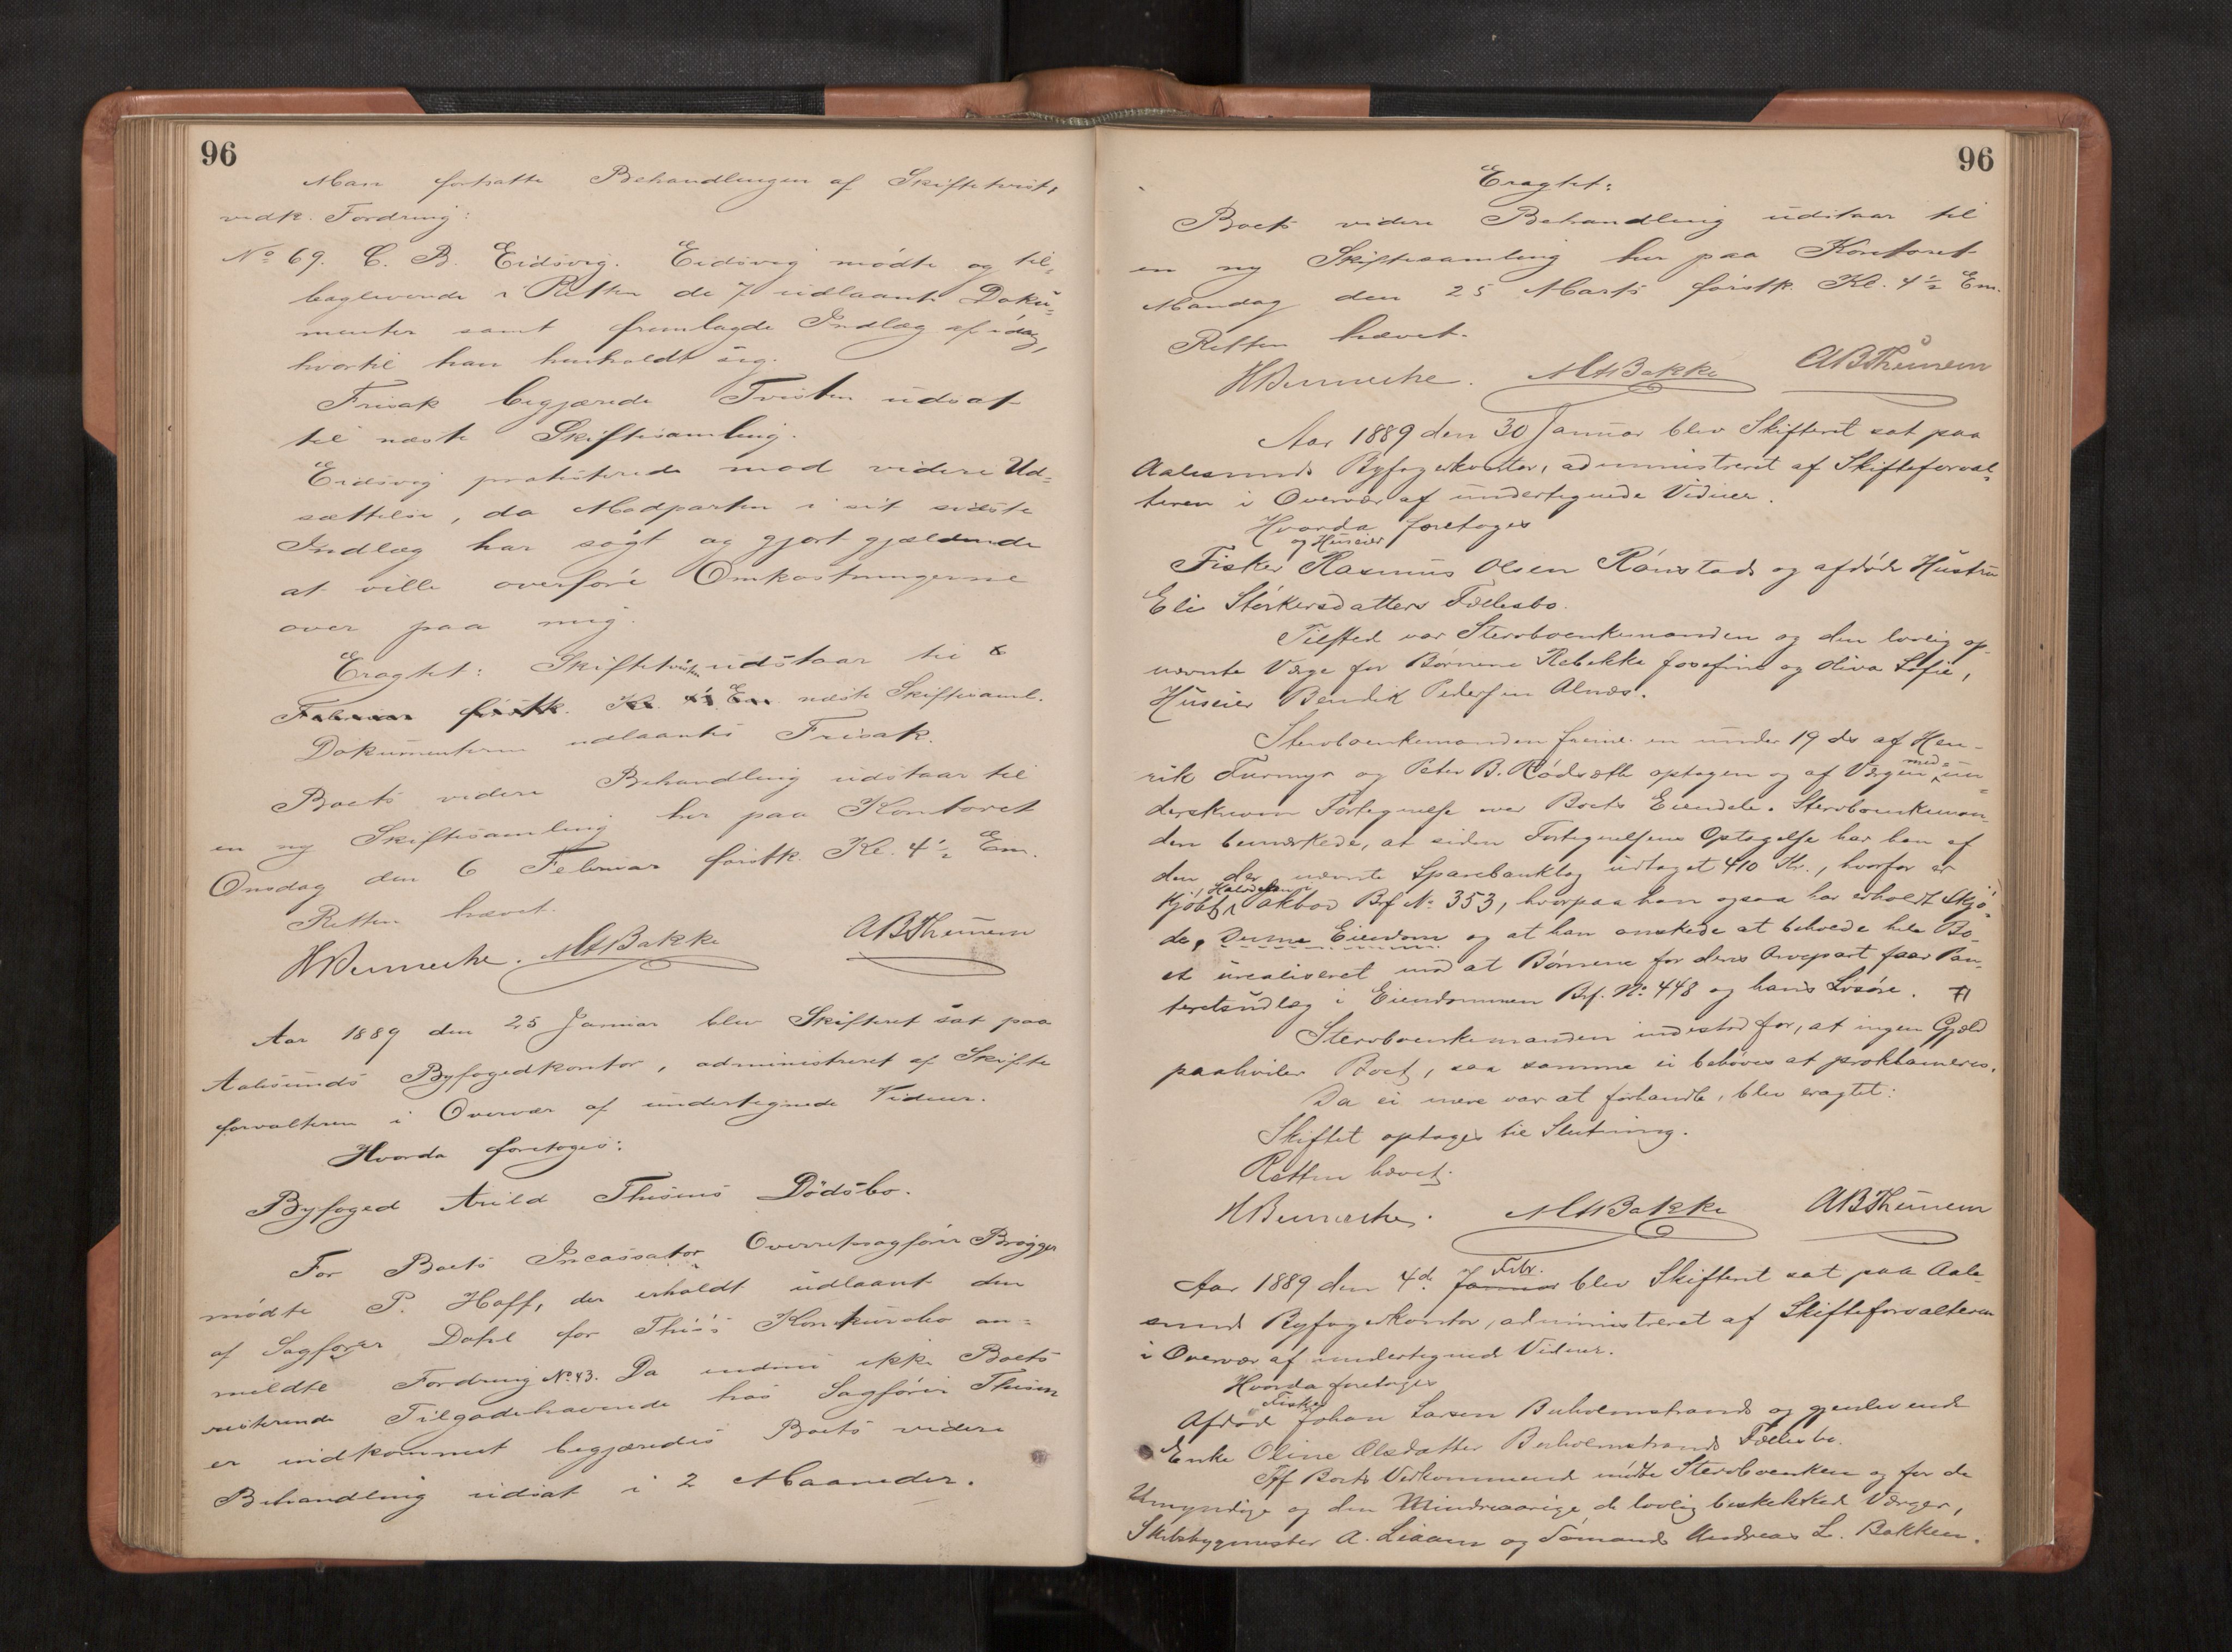 96
Man fortsatte Behandlingen af Skiftetvist,
vedk. Fordring:
No 69. C. B. Eidsvig. Eidsvig mødte og til-
bagleverede i Retten de 7 udlaante Doku-
menter samt fremlagde Indlæg af idag,
hvortil han henholdt sig.
Frisak begjærede Tvisten udsat
til næste Skiftesamling.
Eidsvig protesterede mod videre Ud-
sættelse, da Modparten i sit sidste
Indlæg har søgt og gjort gjældende
at ville overføre Omkostningerne
over paa mig.
Eragtet: Skiftetvisten udstaar til 6
Februar førstk. Kl. 4½ Em. næste Skiftesaml.
Dokumenterne udlaantes Frisak.
Boets videre Behandling udstaar til
en ny Skiftesamling her paa Kontoret
Onsdag den 6 Februar førstk. Kl. 4½ Em.
Retten hævet.
MABakke ABThunem
Aar 1889 den 25 Januar blev Skifteret sat paa
Aalesunds Byfogedkontor, administreret af Skifte
forvalteren i Overvær af undertegnede Vidner.
Hvorda foretoges:
Byfoged Arild Thisens Dødsbo.
For Boets Incassator Overretssagfører Brøgger
mødte P. Hoff, der erholdt udlaant den
af Sagfører Dahl for Thiis Konkursbo an-
meldte Fordring No. 43. Da endnu ikke Boets
resterende Tilgodehavende hos Sagfører Thisen
er indkommet begjæredes Boets videre
Behandling udsat i 2 Maaneder.
96
Eragtet:
Boets videre Behandling udstaar til
en ny Skiftesamling her paa Kontoret
Mandag den 25 Marts førstk. Kl. 4½ Em.
Retten hævet.
MABakke ABThunem
Aar 1889 den 30 Januar blev Skifteret sat paa
Aalesunds Byfogedkontor, administreret af Skifteforval-
teren i Overvær af undertegnede Vidner.
Hvorda foretoges
og Huseier
Fisker Rasmus Olsen Rønstads og afdøde Hustru
Eli Størkersdatters Fællesbo.
Tilsted var Stervboenkemanden og den lovlig op-
nævnte Værge for Børnene Rebekka Josefine og Oliva Sofie,
Huseier Bendik Pedersen Alnæs.
Stervboenkemanden freml. en under 19 ds af Hen-
rik Furmyr og Peter B. Rødsæth optagen og af Værgen med un-
derskreven Fortegnelse over Boets Eiendele. Stervboenkeman-
den bemærkede, at siden Fortegnelsens Optagelse har han af
den der nævnte Sparebankbog udtaget 410 Kr., hvorfor er
kjøbt Halvdelen i Akbod Brf No 353, hvorpaa han ogsaa har erholdt Skjø-
de, Denne Eiendom og at han ønskede at beholde hele Bo-
et urealiseret mod at Børnene for deres Arvepart faar Pan-
teretsudlæg i Eiendommen Brf. No. 448 og hans Løsøre.
Stervboenkemanden indestod for, at ingen Gjæld
paahviler Boet, saa samme ei behøves at proklameres.
Da ei mere var at forhandle, blev eragtet:
Skiftet optages til Slutning.
Retten hævet.
MABakke ABThunem
Aar 1889 den 4de Januar Febr. blev Skifteret sat paa Aale-
sunds Byfogedkontor, administreret af Skifteforvalteren
i Overvær af undertegnede Vidner.
Hvorda foretoges
Afdøde Fisker Johan Larsen Buholmstrands og gjenlevende
Enke Oline Olsdatter Buholmstrands Fællesbo.
Af Boets Vedkommende mødte Stervboenken og for de
Umyndige og den Mindreaarige de lovlig beskikkede Værger,
Skibsbygmester A. Liaaen og Sømand Andreas L. Bakken.